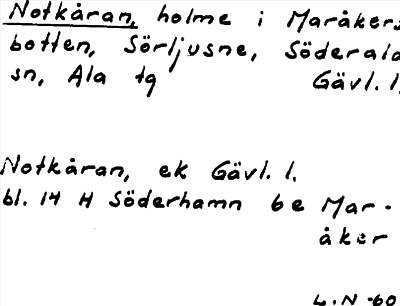 Notkåran, holme i Maråkers
botten, Sörljusne, Söderala
sn, Ala tg Gävl. l.
Notkåran, ek Gävl. l.
bl. 14 H Söderhamn 6e Mar-
åker
L.N -60